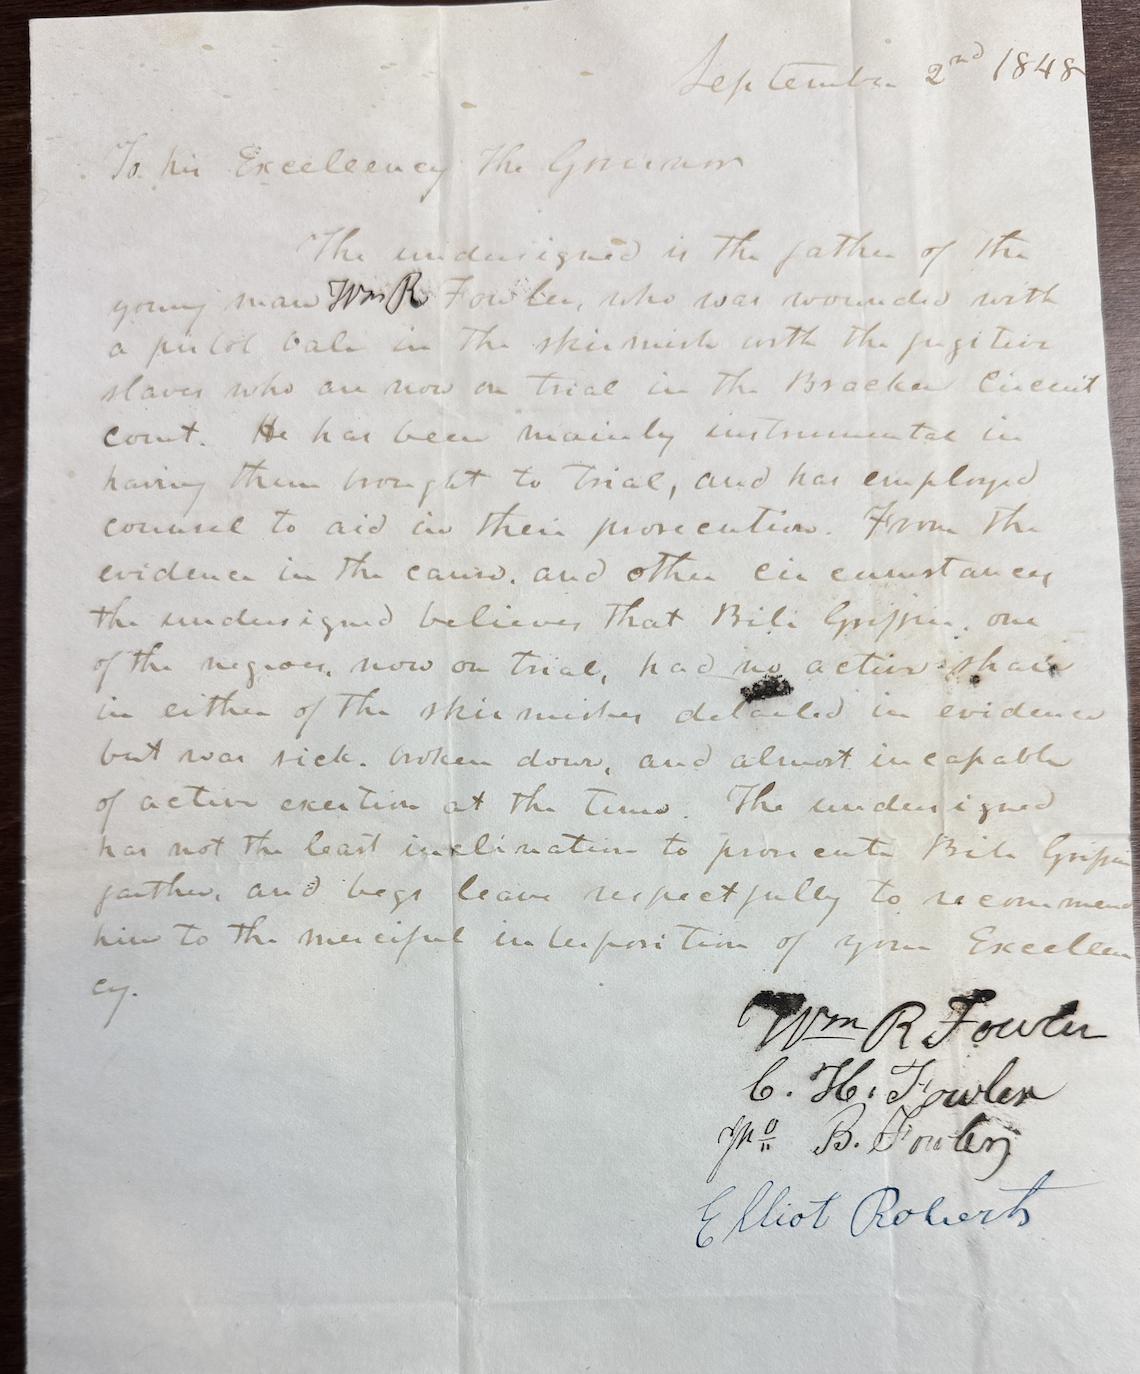 September 2nd 1848
To his Excellency the Governor
The undersigned is the father of the
young man Wm R Fowler, who was wounded with
a pistol ball in the skirmish with the fugitive
slaves who are now on trial in the Bracken Circuit
court. He has been mainly instrumental in
having them brought to trial, and has employed
counsel to aid in their prosecution. From the
evidence in the cause, and other circumstances
the undersigned believes that Bill Griffin, one
of the negroes, now on trial, had no active share
in either of the skirmishes detailed in evidence
but was sick, broken down, and almost incapable
of active exertion at the time. The undersigned
has not the least inclination to prosecute Bill Griffin
further, and begs leave respectfully to recommend
him to the merciful interposition of your Excellen
cy.
Wm R Fowler
C. H. Fowler
Jno B. Fowler
Elliot Roberts